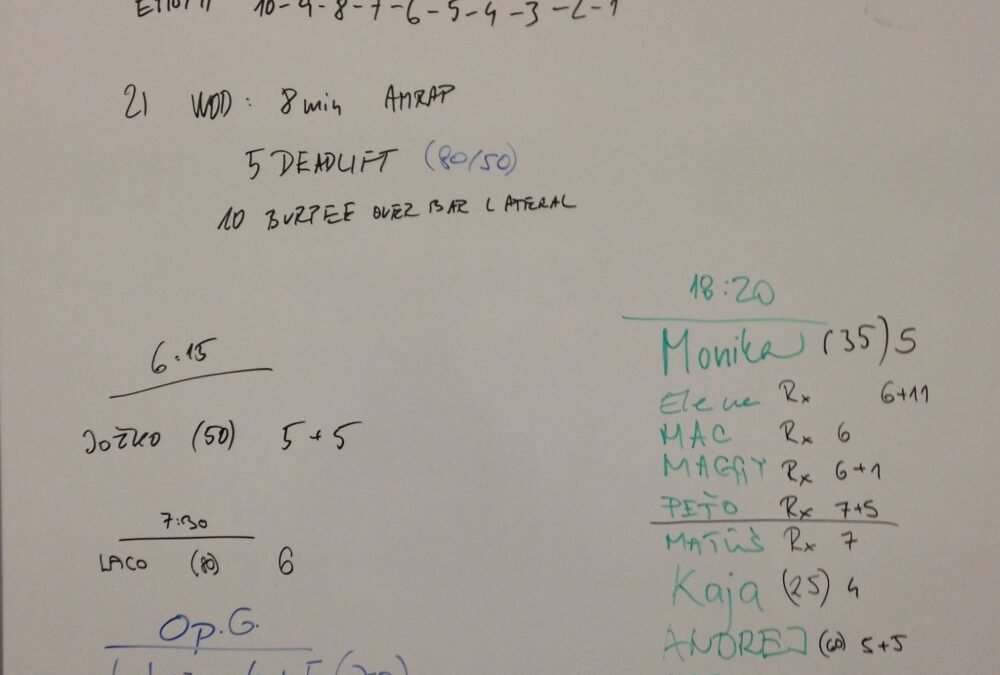 EMOM 10-9-8-7-6-5-4-3-2-1
21 WOD: 8 min AMRAP
5 DEADLIFT (80/50)
10 BURPEE OVER BAR LATERAL
6:15
JOŽKO (50) 5+5
7:30
LACO (80) 6
Op.G.
18:20
Monika (35) 5
Elena Rx 6+11
MAC Rx 6
MAGGY Rx 6+1
PEŤO Rx 7+5
MATÚŠ Rx 7
Kaja (25) 4
ANDREJ (60) 5+5